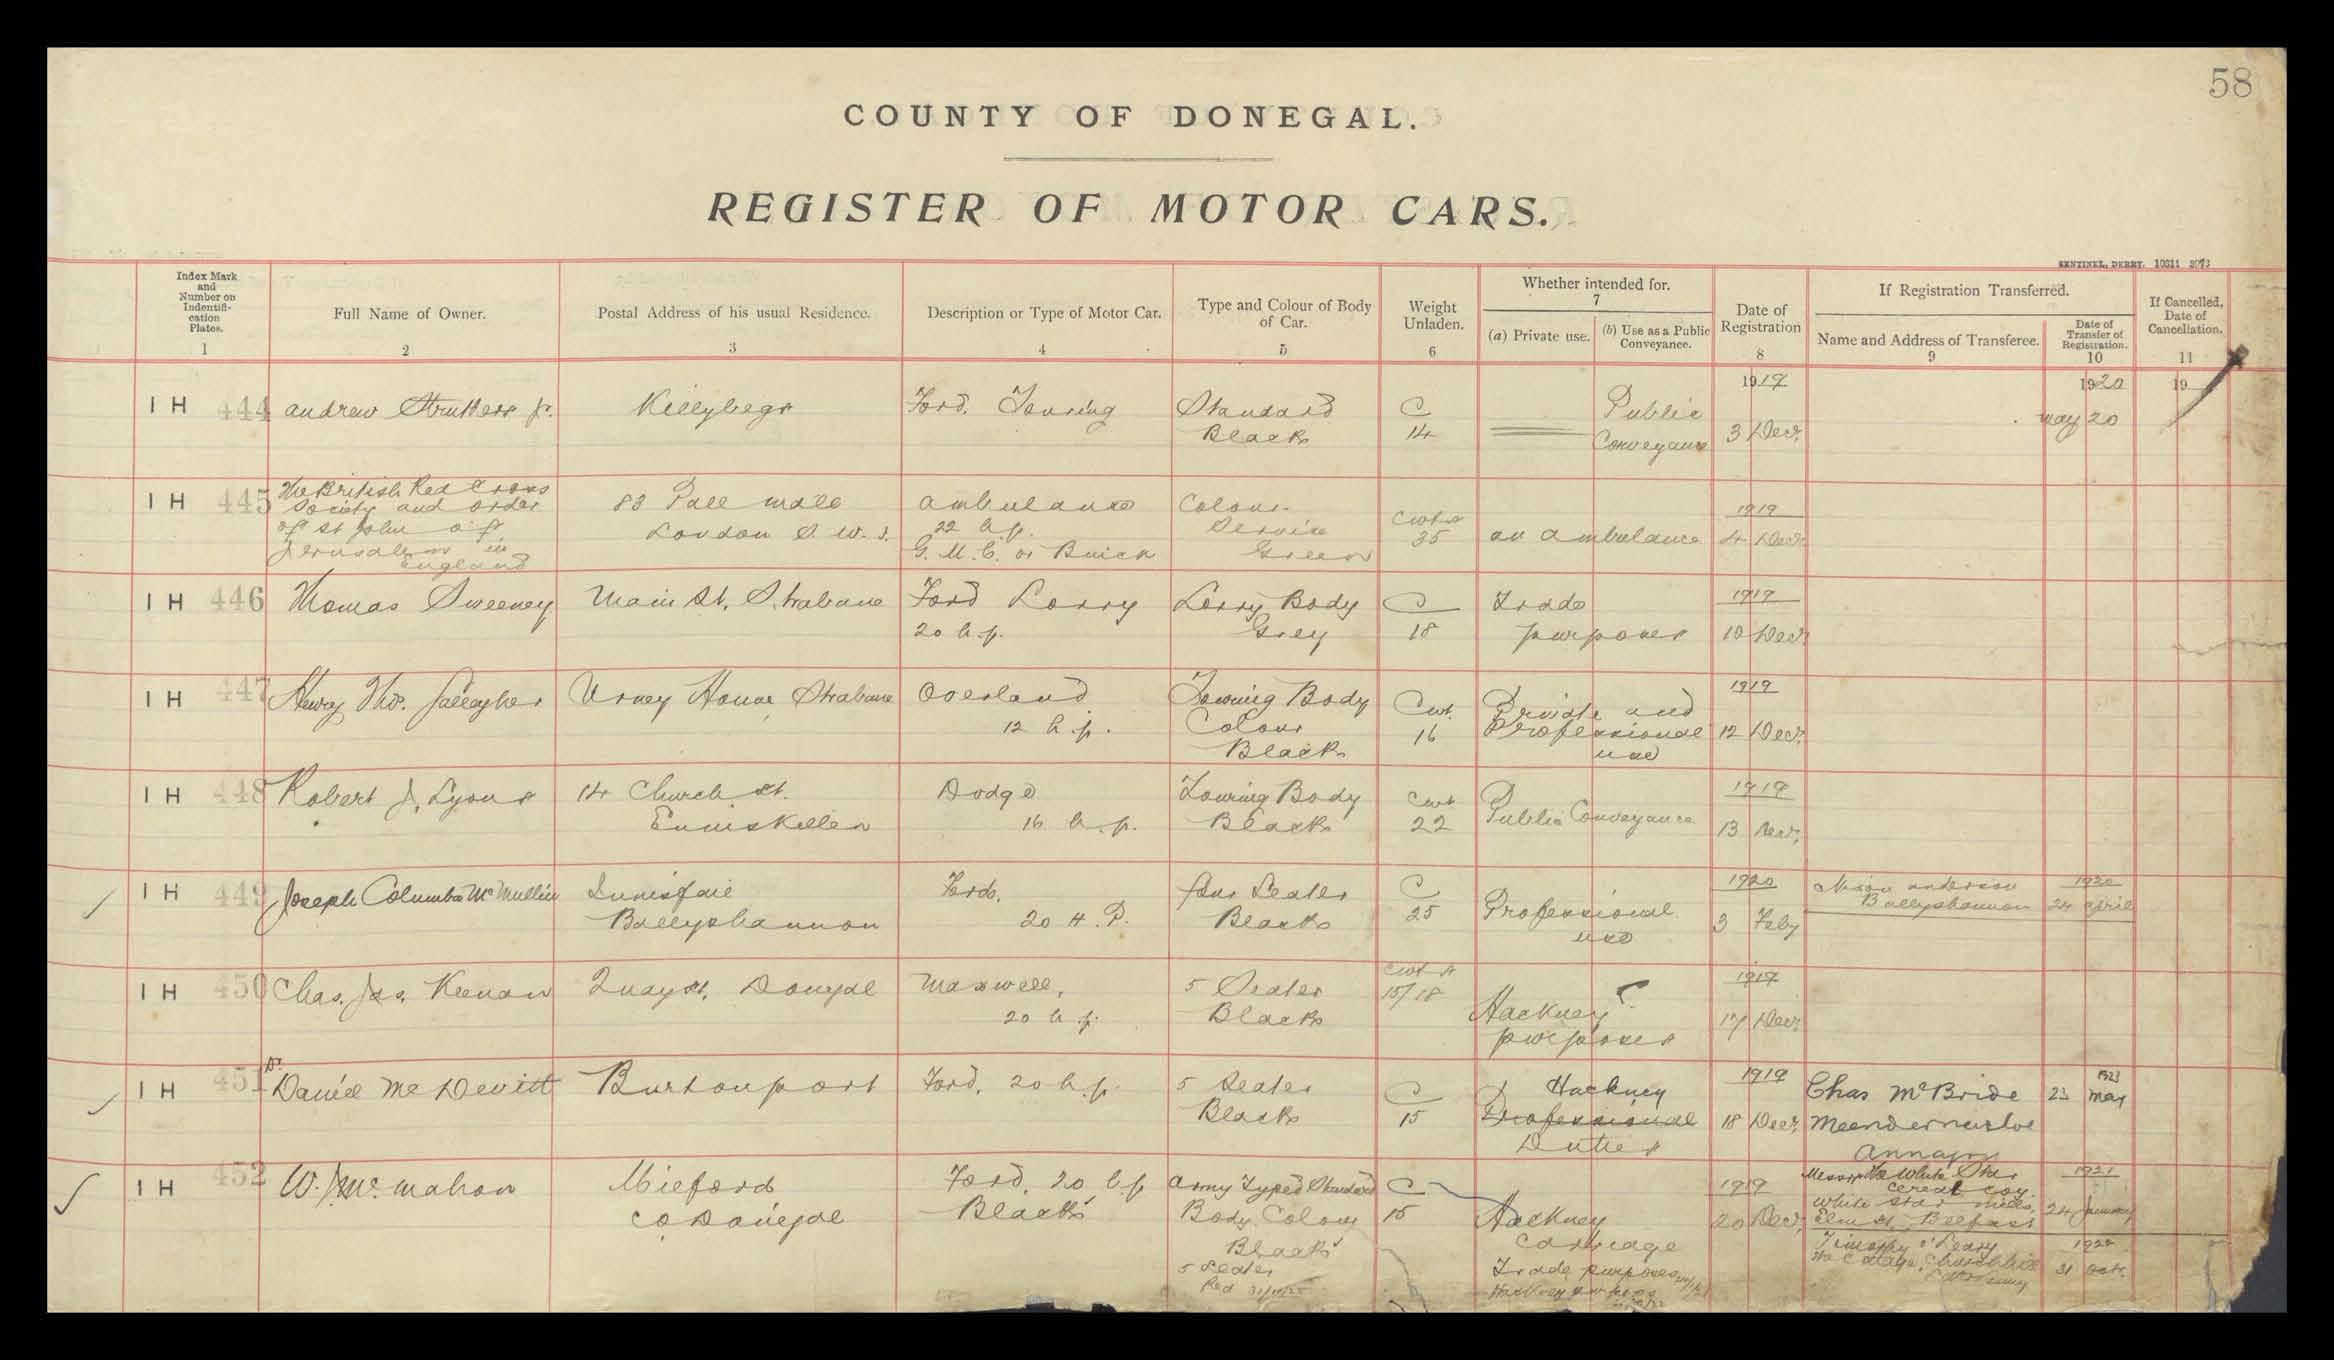 58
COUNTY OF DONEGAL.
REGISTER OF MOTOR CARS.
SENTINEL, DERRY.
Index Mark
and
Number on
Indentifi-
cation
Plates.
1
Full Name of Owner.
2
Postal Address of his usual Residence.
3
Description or Type of Motor Car.
4
Type and Colour of Body
of Car.
5
Weight
Unladen.
6
Whether intended for.
7
(a) Private use.
(b) Use as a Public
Conveyance.
Date of
Registration
8
If Registration Transferred.
Name and Address of Transferee.
9
Date of
Transfer of
Registration.
10
If Cancelled,
Date of
Cancellation.
11
IH 444 Andrew Struthers Jr.
Killybegs
Ford. Touring
Standard
Black
C
14
Public
Conveyance
1919
3 Decr.
1920
May 20
19
IH 445 The British Red Cross
Society and Order
of St John of
Jerusalem in
England
83 Pall Mall
London S. W. 1.
Ambulance
22 h.p.
G. M. C. or Buick
Colour
Service
Green
Cwts
35
an ambulance
1919
4 Decr
IH 446 Thomas Sweeney
Main St. Strabane
Ford Lorry
20 h.p.
Lorry Body
Grey
C
18
Trade
purposes
1919
10 Decr
IH 447 Henry Thos. Gallagher
Urney House Strabane
Overland
12 h.p.
Touring Body
Colour
Black
Cwt.
16
Private and
Professional
use
1919
12 Decr.
IH 448 Robert J. Lyons
14 Church St.
Enniskillen
Dodge
16 h.p.
Touring Body
Black
Cwt
22
Public Conveyance
1919
13 Decr.
IH 449 Joseph Columba McMullin
Innisfail
Ballyshannon
Ford.
20 H.P.
four Seater
Black
C
25
Professional
use
1920
3 Feby
anderson
Ballyshannon
1920
24 April
IH 450 Chas. Jas. Keenan
Quay St. Donegal
Maxwell,
20 h.p.
5 Seater
Black
Cwts
15/18
Hackney
purposes
1919
17 Decr
IH 451 Dr.
Daniel McDevitt
Burtonport
Ford. 20 h.p.
5 Seater
Black
C
15
Hackney
Professional
Duties
1919
18 Decr.
Chas McBride
Annagry
1923
23 May
IH 452 W. J. McMahon
Milford
Co. Donegal
Ford. 20 h.p
Black
Army Typed Standard
Body Colour
Black
5 Seater
Red
C
15
Hackney
Carriage
Trade purposes
Hackney purposes
1919
20 Decr.
Messrs The White Star
Cereal Coy.
White Star Mills,
Elm St. Belfast
1921
24 January
Timothy O'Leary
The Cottage, Churchhill
Letterkenny
1922
31 Octr.